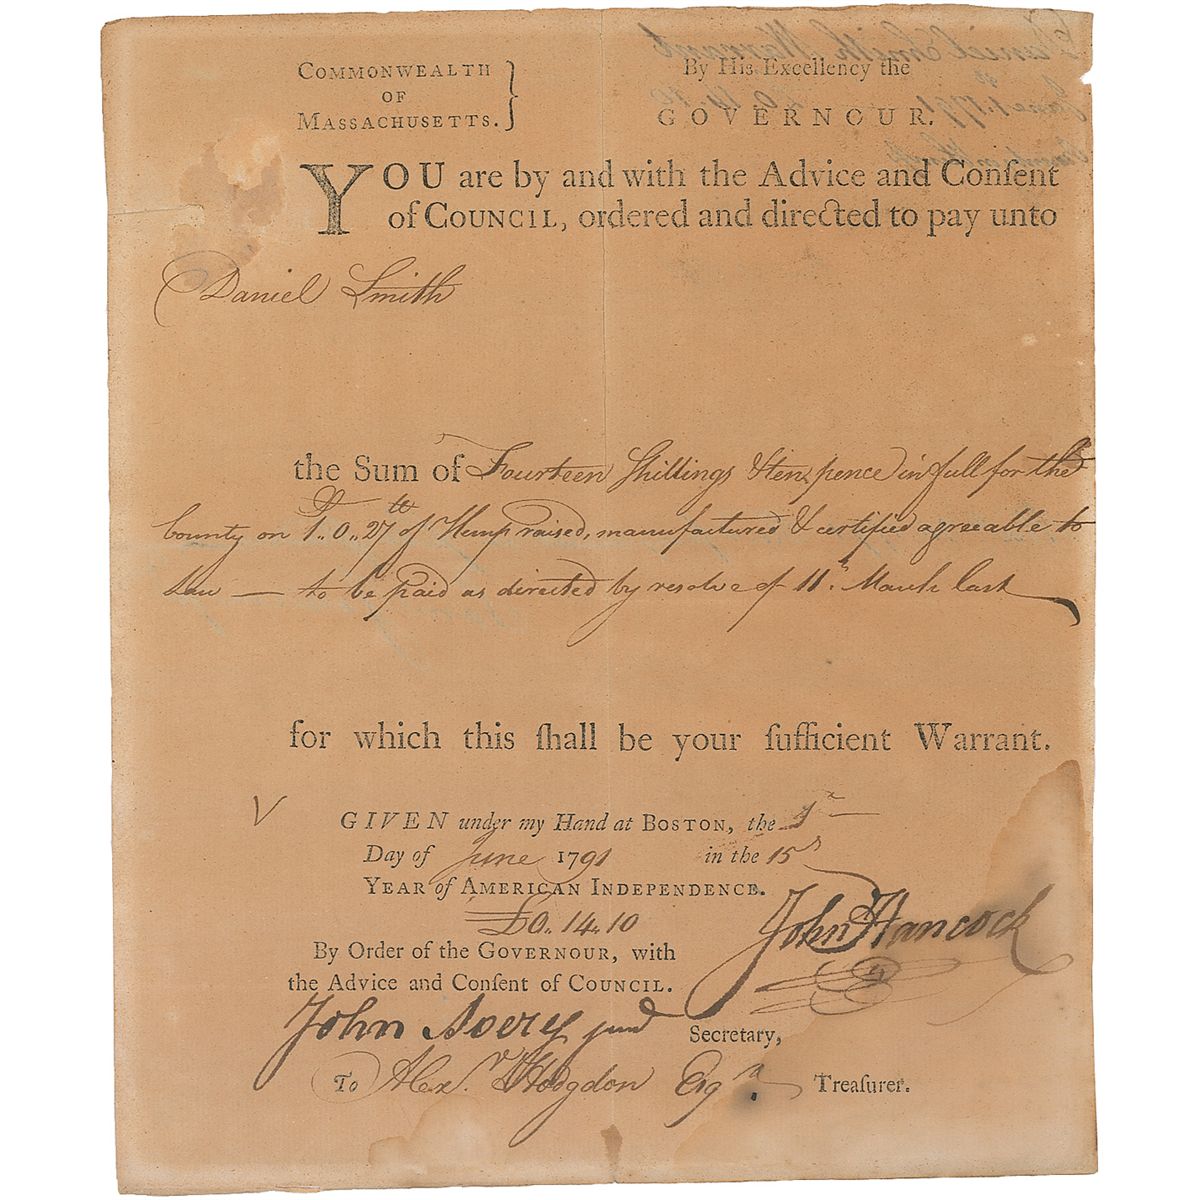 COMMONWEALTH
OF
MASSACHUSETTS.
By His Excellency the
GOVERNOUR.
YOU are by and with the Advice and Conſent
of COUNCIL, ordered and directed to pay unto
Daniel Smith
the Sum of Fourteen Shillings & ten pence in full for the
bounty on 1..0..27 lb of Hemp raised, manufactured & certified agreeable to
Law — to be paid as directed by resolve of 11th March last
for which this ſhall be your ſufficient Warrant.
GIVEN under my Hand at BOSTON, the 1st
Day of June 1791 in the 15th
YEAR of AMERICAN INDEPENDENCE.
£0..14..10
John Hancock
By Order of the GOVERNOUR, with
the Advice and Conſent of COUNCIL.
John Avery junr Secretary,
To Alexr Hodgdon Esqr Treaſurer.